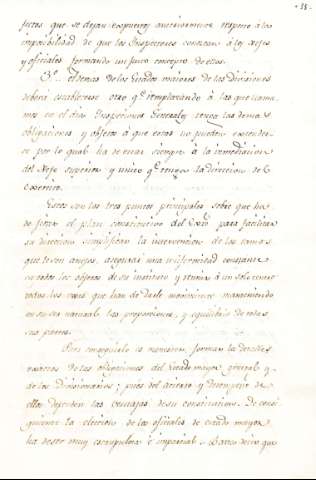 18.
que se dejan expuestos anteriormente respecto á la
imposibilidad de que los Inspectores conozcan á los Xefes
y oficiales formando un juicio concepto de ellos.
3º. de los Estados mayores de las Divisiones
deberá establecerse otro qe. reemplazando á las que llama-
mos en el dia Inspecciones Generales, las demas
obligaciones y objetos á que estas no pueden
se por lo qual ha de estar siempre á la inmediacion
del Xefe superior y unico qe. tenga la direccion del
Exercito.
Estos son los tres puntos principales sobre que ha
de el plan constitutivo del para facilitar
su direccion simplificar la intervencion de los ramos
que le son anejos, asegurar una uniformidad constante
en todos los objetos de su instituto y reunir á un solo
todas las que han de darle movimiento manteniendo
en su ser natural las proporciones, y equilibrio de todas
sus partes.
Para conseguirlo es necesario, formar la
de las obligaciones del Estado mayor general y
de los Divisionarios; pues del acierto y desempeño de
ellas dependen las ventajas de su constitucion. De consi-
guiente la eleccion de los oficiales de estado mayor
ha de ser muy escrupulosa é imparcial. que